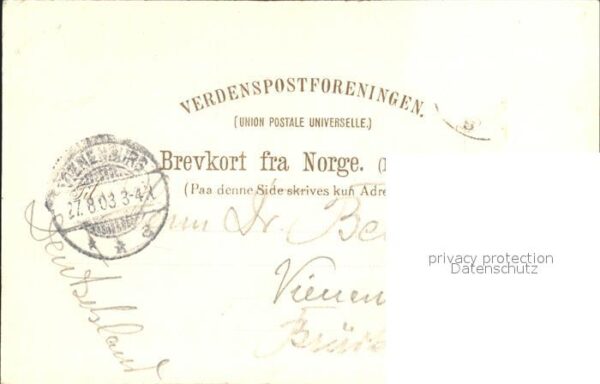 VERDENSPOSTFORENINGEN.
(UNION POSTALE UNIVERSELLE.)
Brevkort fra Norge.
(Paa denne Side skrives kun Adre
27.8.03 3-4
Herrn Dr. Be
privacy protection
Datenschutz
Vienen
Brück
Deutschland